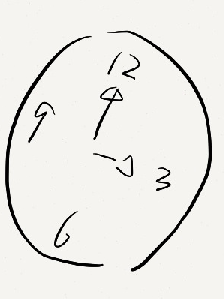 12
9
3
6